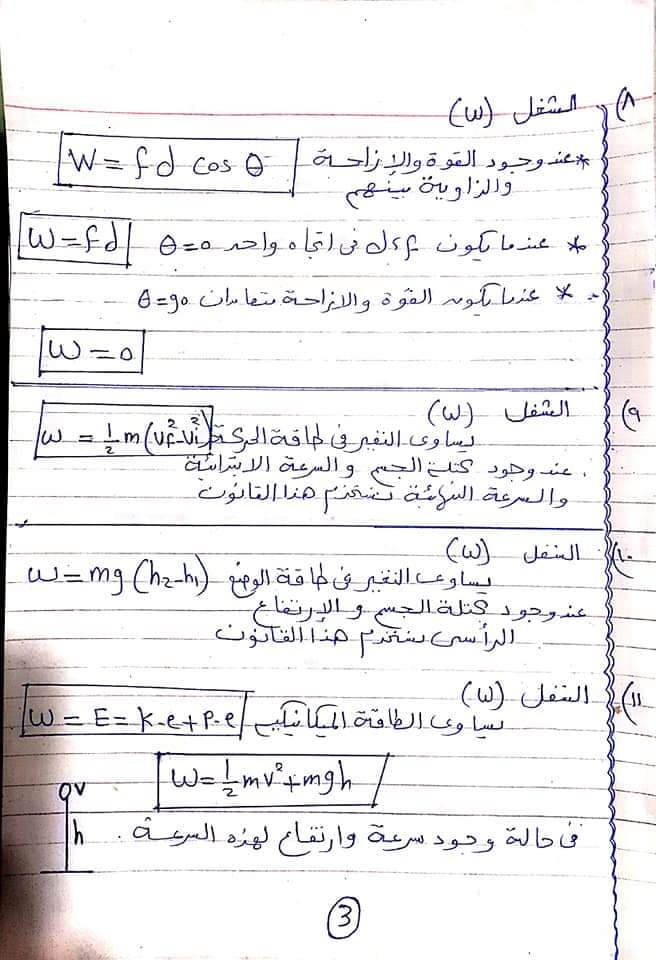 ٨) الشغل (W)
* عند وجود القوة والإزاحة W = fd cos θ
والزاوية بينهم
* عندما يكون f و d فى اتجاه واحد θ=0 W=fd
* عندما يكون القوة والازاحة متعامدان θ=90
W=0
٩) الشغل (W)
يساوى التغير فى طاقة الحركة W = 1/2 m(vf²-vi²)
عند وجود كتلة الجسم و السرعة الابتدائية
والسرعة النهائية نستخدم هذا القانون
١٠) الشغل (W)
يساوى التغير فى طاقة الوضع W=mg(h2-h1)
عند وجود كتلة الجسم و الإرتفاع
الرأسى نستخدم هذا القانون
١١) الشغل (W)
يساوى الطاقة الميكانيكية W = E = K.e+P.e
W=1/2 mv²+mgh
v
h
فى حالة وجود سرعة وارتفاع لهذه السرعة .
3